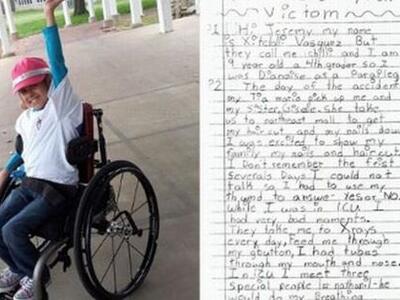 Victom
1 Hi Jeremy my name
is Xitclali Vasquez But
they call me chilli and I am
9 year old a 4th grader so I
was Dianoise as a Parapleg
2 The day of the accident
my Tia maria pick up me and
my sister, Gisele. She take
us to northeast mall to get
my haircut and my nails done
I was excited to show my
family my nails and haircut
I Don't remember the first
severals Days I could not
talk so I had to use my
thumb to answer Yes or No.
While I was in ICU I
had very bad moments.
They take me to Xrays
every day, feed me through
my gbutton, I had tubes
through my mouth and nose.
In ICU I meet three
special people is nathanil-he
would do my breathing